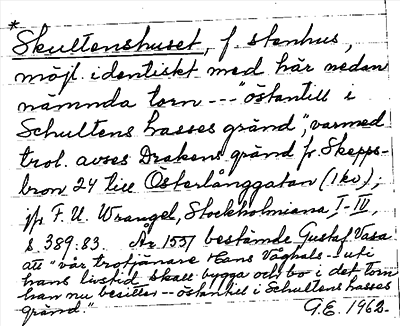 *
Skultenshuset, f. stenhus,
möjl. identiskt med här nedan
nämnda torn --- "östantill i
Schultens hasses gränd", varmed
trol. avses Drakens gränd fr. Skepps-
bron 24 till Österlånggatan (1 kv);
jfr F. U. Wrangel, Stockholmiana I-IV,
s. 389:83. År 1551 bestämde Gustaf Vasa
att "vår trotjänare Hans Våghals - uti
hans livstid skall bygga och bo i det torn
han nu besitter -- östantill i Schultens hasses
gränd." G.E. 1962.